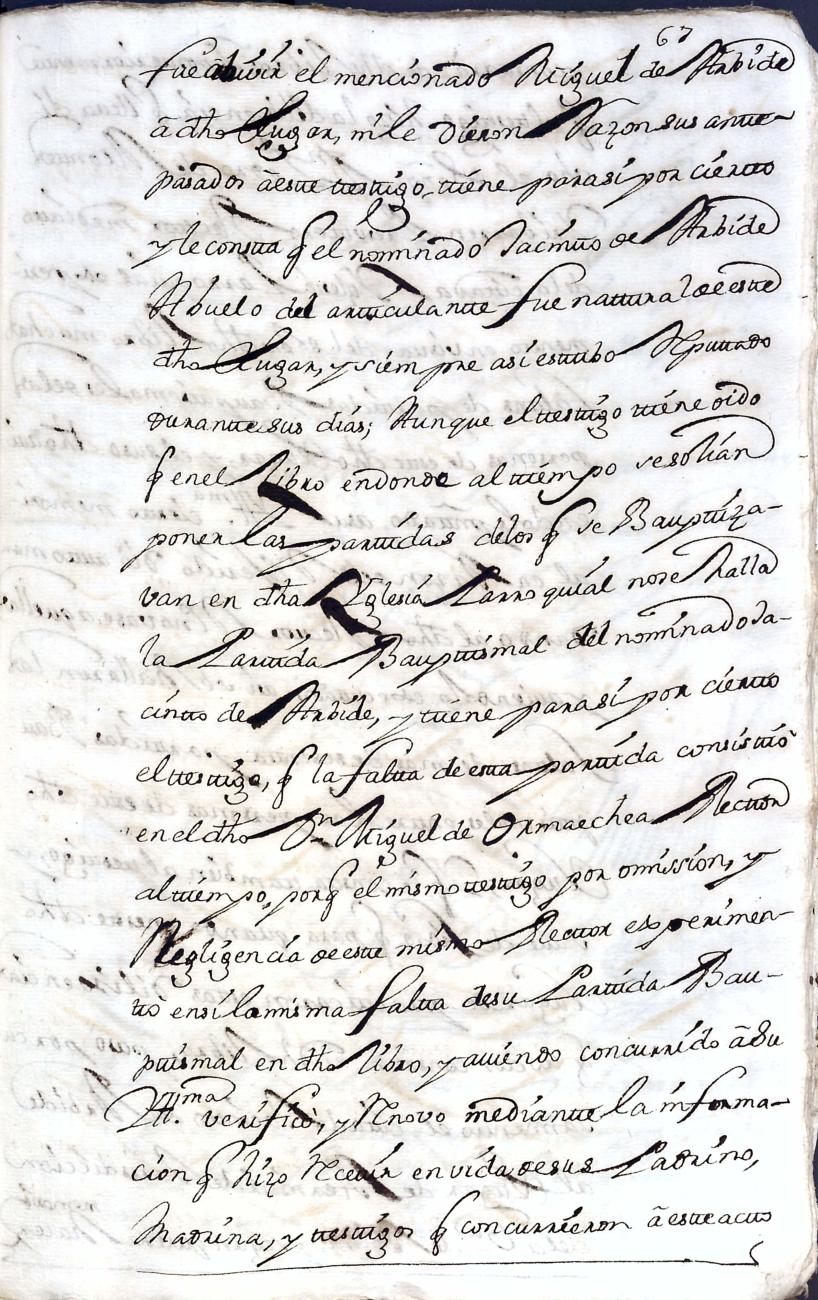 67
fue a bivir el mencionado Miguel de Arbide
a dho Lugar, ni le dieron Razon sus ante-
pasados a este testigo, tiene para si por cierto
y le consta q el nominado Jacinto de Arbide
Abuelo del articulante fue natural de este
dho Lugar, y siempre asi estubo Reputado
durante sus dias; Aunque el testigo tiene oido
q en el Libro en donde al tiempo se solian
poner las partidas de los q se Bauptiza-
van en dha Yglesia Parroquial no se Halla
la Partida Bauptismal del nominado Ja-
cinto de Arbide, y tiene para si por cierto
el testigo, q la falta de esta partida consistió
en el dho Dn Miguel de Ormaechea Rector
al tiempo, porq el mismo testigo por omission, y
Negligencia de este mismo Rector experimen-
tó en si la misma falta de su Partida Bau-
ptismal en dho Libro, y aviendo concurrido a Su
Illma. verificó, y Renovo mediante la informa-
cion q hizo Recevir en vida de sus Padrino,
Madrina, y testigos q concurrieron a este acto